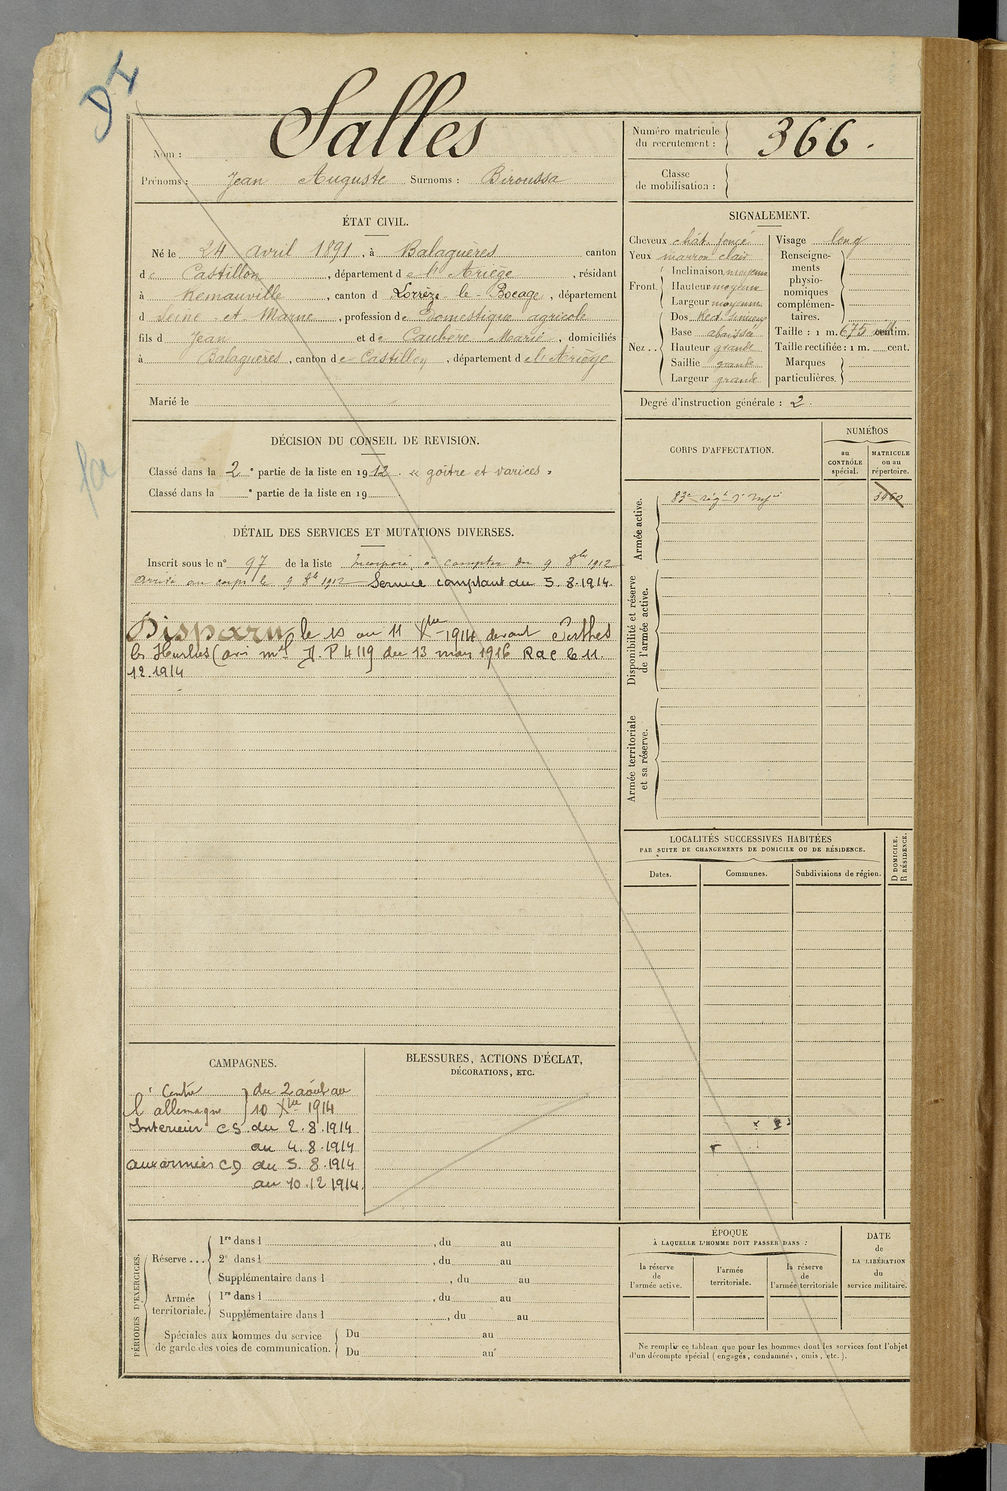 DI
Salles
Nom :
Prénoms : Jean Auguste Surnoms : Biroussa
Numéro matricule du recrutement : 366.
Classe de mobilisation :
ÉTAT CIVIL.
Né le 24 avril 1891, à Balaguères canton
de Castillon, département de l'Ariège, résidant
à Remauville, canton d Lorrèz le Bocage, département
d Seine et Marne, profession de Domestique agricole
fils d Jean et de Caubère Marie, domiciliés
à Balaguères, canton de Castillon, département de l'Ariège
Marié le
SIGNALEMENT.
Cheveux chât. foncé
Yeux marron clair
Front. Inclinaison moyenne
Hauteur moyenne
Largeur moyenne
Nez.. Dos Rect. sinueux
Base abaissée
Hauteur grande
Saillie grande
Largeur grande
Visage long
Renseignements physionomiques complémentaires.
Taille : 1 m. 675 centim.
Taille rectifiée : 1 m. cent.
Marques particulières.
Degré d'instruction générale : 2.
DÉCISION DU CONSEIL DE REVISION.
Classé dans la 2e partie de la liste en 1912. « goitre et varices »
Classé dans la e partie de la liste en 19
DÉTAIL DES SERVICES ET MUTATIONS DIVERSES.
Inscrit sous le n° 97 de la liste Incorporé, à compter du 9 8bre 1912
arrivé au corps le 9 8bre 1912 Service comptant du 5.8.1914.
Disparu le 10 au 11 Xbre 1914 devant Perthes
les Hurlus (avis mel N.P 4119 du 13 mars 1916 Rac le 11.
12.1914
CORPS D'AFFECTATION.
NUMÉROS
au CONTRÔLE spécial.
MATRICULE ou au répertoire.
Armée active.
83e régt d'Infie
3460
Disponibilité et réserve de l'armée active.
Armée territoriale et sa réserve.
LOCALITÉS SUCCESSIVES HABITÉES
PAR SUITE DE CHANGEMENTS DE DOMICILE OU DE RÉSIDENCE.
Dates.
Communes.
Subdivisions de région.
D DOMICILE.
R RÉSIDENCE.
CAMPAGNES.
Contre du 2 août au
l'allemagne 10 Xbre 1914
Intérieur CS du 2.8.1914
au 4.8.1914
aux armées CD du 5.8.1914
au 10.12 1914.
BLESSURES, ACTIONS D'ÉCLAT,
DÉCORATIONS, ETC.
PÉRIODES D'EXERCICES.
Réserve ... 1re dans l , du au
2e dans l , du au
Supplémentaire dans l , du au
Armée territoriale. 1re dans l , du au
Supplémentaire dans l , du au
Spéciales aux hommes du service de garde des voies de communication. Du au
Du au
ÉPOQUE
À LAQUELLE L'HOMME DOIT PASSER DANS :
la réserve de l'armée active.
l'armée territoriale.
la réserve de l'armée territoriale
DATE de LA LIBÉRATION du service militaire.
Ne remplir ce tableau que pour les hommes dont les services font l'objet
d'un décompte spécial (engagés, condamnés, omis, etc.).